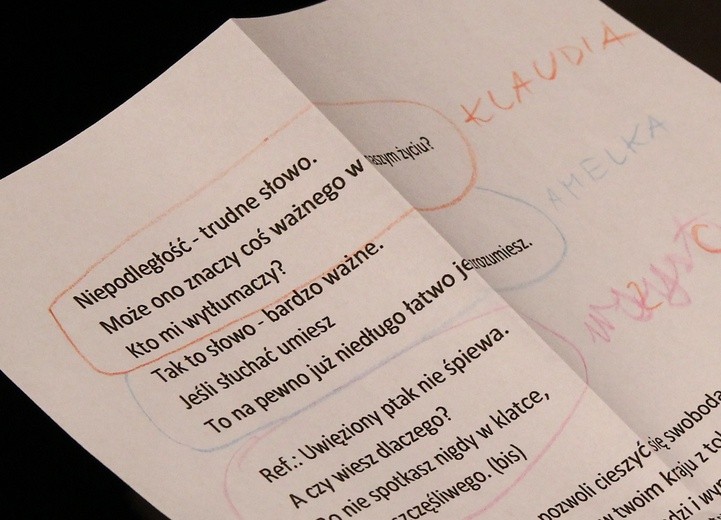 KLAUDIA
Niepodległość - trudne słowo.
Może ono znaczy coś ważnego w naszym życiu?
Kto mi wytłumaczy?
AMELKA
Tak to słowo - bardzo ważne.
Jeśli słuchać umiesz
To na pewno już niedługo łatwo je zrozumiesz.
Ref.: Uwięziony ptak nie śpiewa.
A czy wiesz dlaczego?
Bo nie spotkasz nigdy w klatce,
szczęśliwego. (bis)
pozwoli cieszyć się swobodą
w twoim kraju z